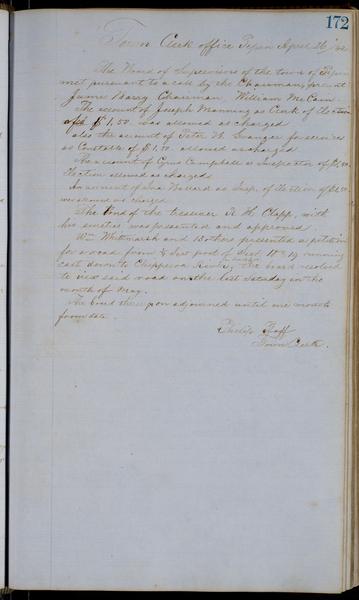 172
Town Clerk office Pepin April 26
The Board of Supervisors of the town of Pepin
met pursuant to a call by the Chairman, present
James Barry Chairman, William McCain
The account of Joseph Manning as Clerk of Election
of $1,50 was allowed as charged
also the account of Peter W. for services
as Constable of $1,50. allowed as charged.
The account of Cyrus Campbell as Inspector of
Election allowed as charged
An account of Ballard as Insp. of Election of
was allowed as charged.
The bond of the tresurer H. Clapp, with
his sureties was presented and approved.
Wm Whitmarsh and 13 others presented a petition
for a road from ¼ Sec post of Sect 18 & 19 running
east down to Chippewa River, The board resolved
to view said road on the last Satuday in the
month of May.
The board thereupon adjourned until one month
from date.
Philip Pfaff
Town Clerk.